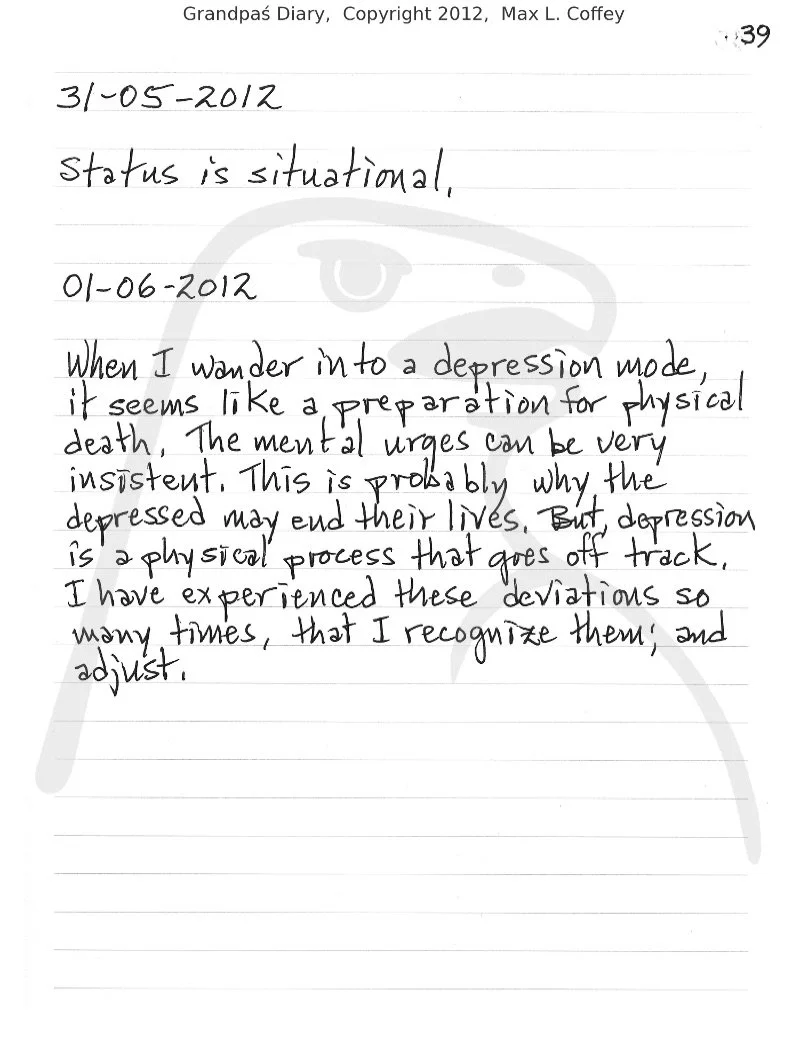 Grandpaś Diary, Copyright 2012, Max L. Coffey
39
31-05-2012
Status is situational.
01-06-2012
When I wander into a depression mode,
it seems like a preparation for physical
death. The mental urges can be very
insistent. This is probably why the
depressed may end their lives. But, depression
is a physical process that goes off track.
I have experienced these deviations so
many times, that I recognize them; and
adjust.